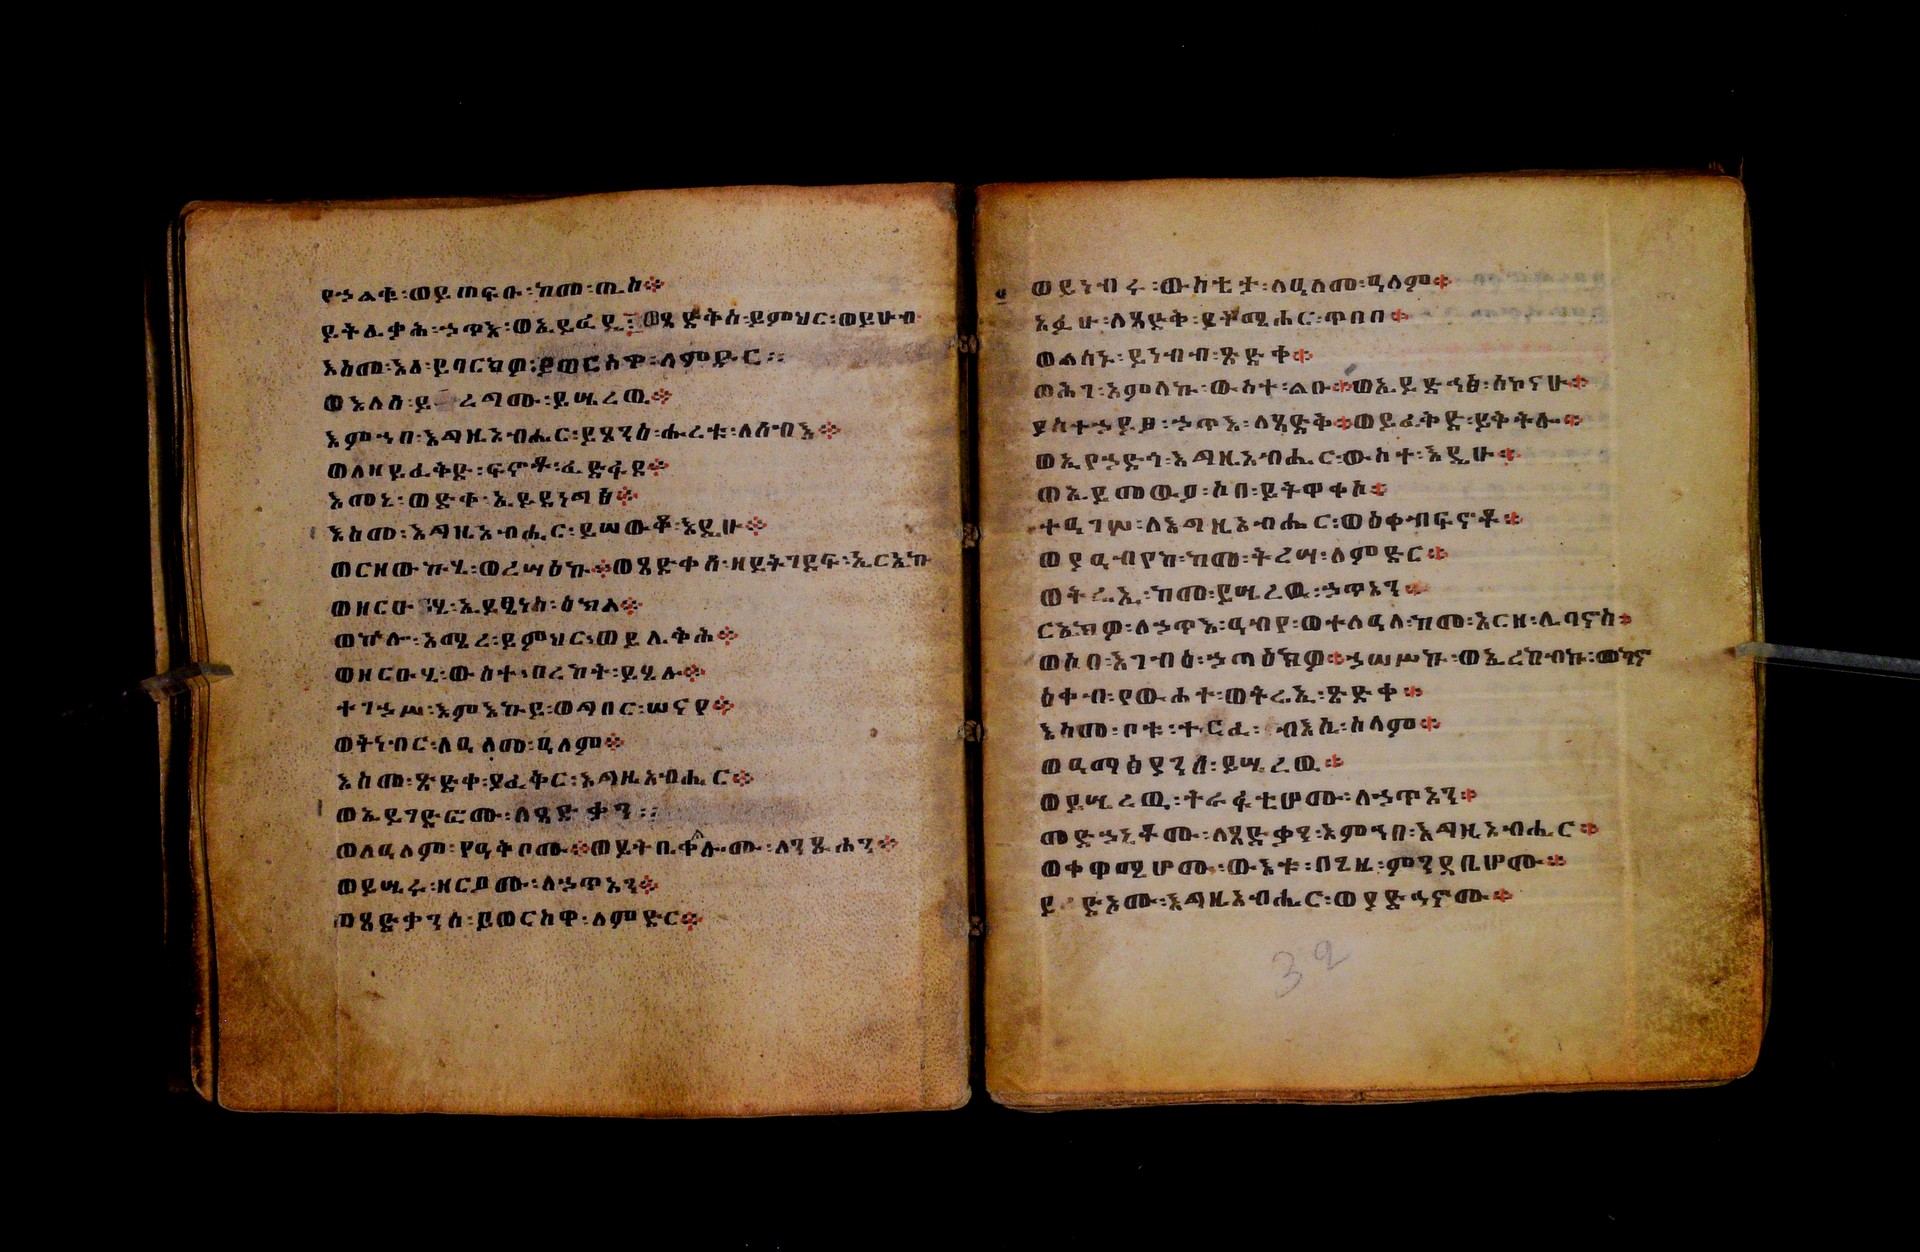 የኃልቁ፡ወይጠፍኡ፡ከመ፡ጢስ፨
ይትሌቃሕ፡ኃጥእ፡ወኢይፈዲ፡ወጻድቅሰ፡ይምህር፡ወይሁብ
እስመ፡እለ፡ይባርክዎ፡ይወርስዋ፡ለምድር፡፡
ወእለሰ፡ይረግሙ፡ይሤረዉ፨
እምኀበ፡እግዚአብሔር፡ይጸንዕ፡ሑረቱ፡ለሰብእ፨
ወለዘይፈቅድ፡ፍኖቶ፡ፈድፋደ፨
እመኒ፡ወድቀ፡ኢይደነግፅ፨
እስመ፡እግዚአብሔር፡ይሠውቆ፡እዴሁ፨
ወርዘውኩሂ፡ወረሣዕኩ፨ወጻድቀሰ፡ዘይትገደፍ፡ኢርኢኩ
ወዘርዑሂ፡ኢይፂነስ፡ዕክለ፨
ወኵሎ፡አሚረ፡ይምህር፡ወይሌቅሕ፨
ወዘርዑሂ፡ውስተ፡በረከት፡ይሂሉ፨
ተገኃሥ፡እምእኩይ፡ወግበር፡ሠናየ፨
ወትነብር፡ለዓለመ፡ዓለም፨
እስመ፡ጽድቀ፡ያፈቅር፡እግዚአብሔር፨
ወኢይገድፎሙ፡ለጻድቃን፡፡
ወለዓለም፡የዓቅቦሙ፨ወይትቤቀሎሙ፡ለንጹሐን፨
ወይሤሩ፡ዘርዖሙ፡ለኃጥአን፨
ወጻድቃንሰ፡ይወርስዋ፡ለምድር፨
ወይነብሩ፡ውስቴታ፡ለዓለመ፡ዓለም፨
አፉሁ፡ለጻድቅ፡ይትሜሐር፡ጥበበ፨
ወልሳኑ፡ይነብብ፡ጽድቀ፨
ወሕገ፡አምላኩ፡ውስተ፡ልቡ፨ወኢይድኅፅ፡ሰኮናሁ፨
ያስተኃይፅ፡ኃጥእ፡ለጻድቅ፨ወይፈቅድ፡ይቅትሎ፨
ወኢየኃድጎ፡እግዚአብሔር፡ውስተ፡እዴሁ፨
ወኢይመውዖ፡ሶበ፡ይትዋቀስ፨
ተዓገሥ፡ለእግዚአብሔር፡ወዕቀብፍኖቶ፨
ወያዓብየከ፡ከመ፡ትረሣ፡ለምድር፨
ወትሬኢ፡ከመ፡ይሤረዉ፡ኃጥአን፨
ርኢክዎ፡ለኃጥእ፡ዓብየ፡ወተለዓለ፡ከመ፡አርዘ፡ሊባኖስ፨
ወሶበ፡እገብዕ፡ኃጣዕክዎ፨ኃሠሥኩ፡ወኢረከብኩ፡መካኖ
ዕቀብ፡የውሐተ፡ወትሬኢ፡ጽድቀ፨
እስመ፡ቦቱ፡ተርፈ፡ብእሲ፡ሰላም፨
ወዓማፅያንሰ፡ይሤረዉ፨
ወይሤረዉ፡ትራፋቲሆሙ፡ለኃጥአን፨
መድኃኒቶሙ፡ለጻድቃን፡እምኀበ፡እግዚአብሔር፨
ወቀዋሚሆሙ፡ውእቱ፡በጊዜ፡ምንዳቤሆሙ፨
ይረድኦሙ፡እግዚአብሔር፡ወያድኅኖሙ፨
32